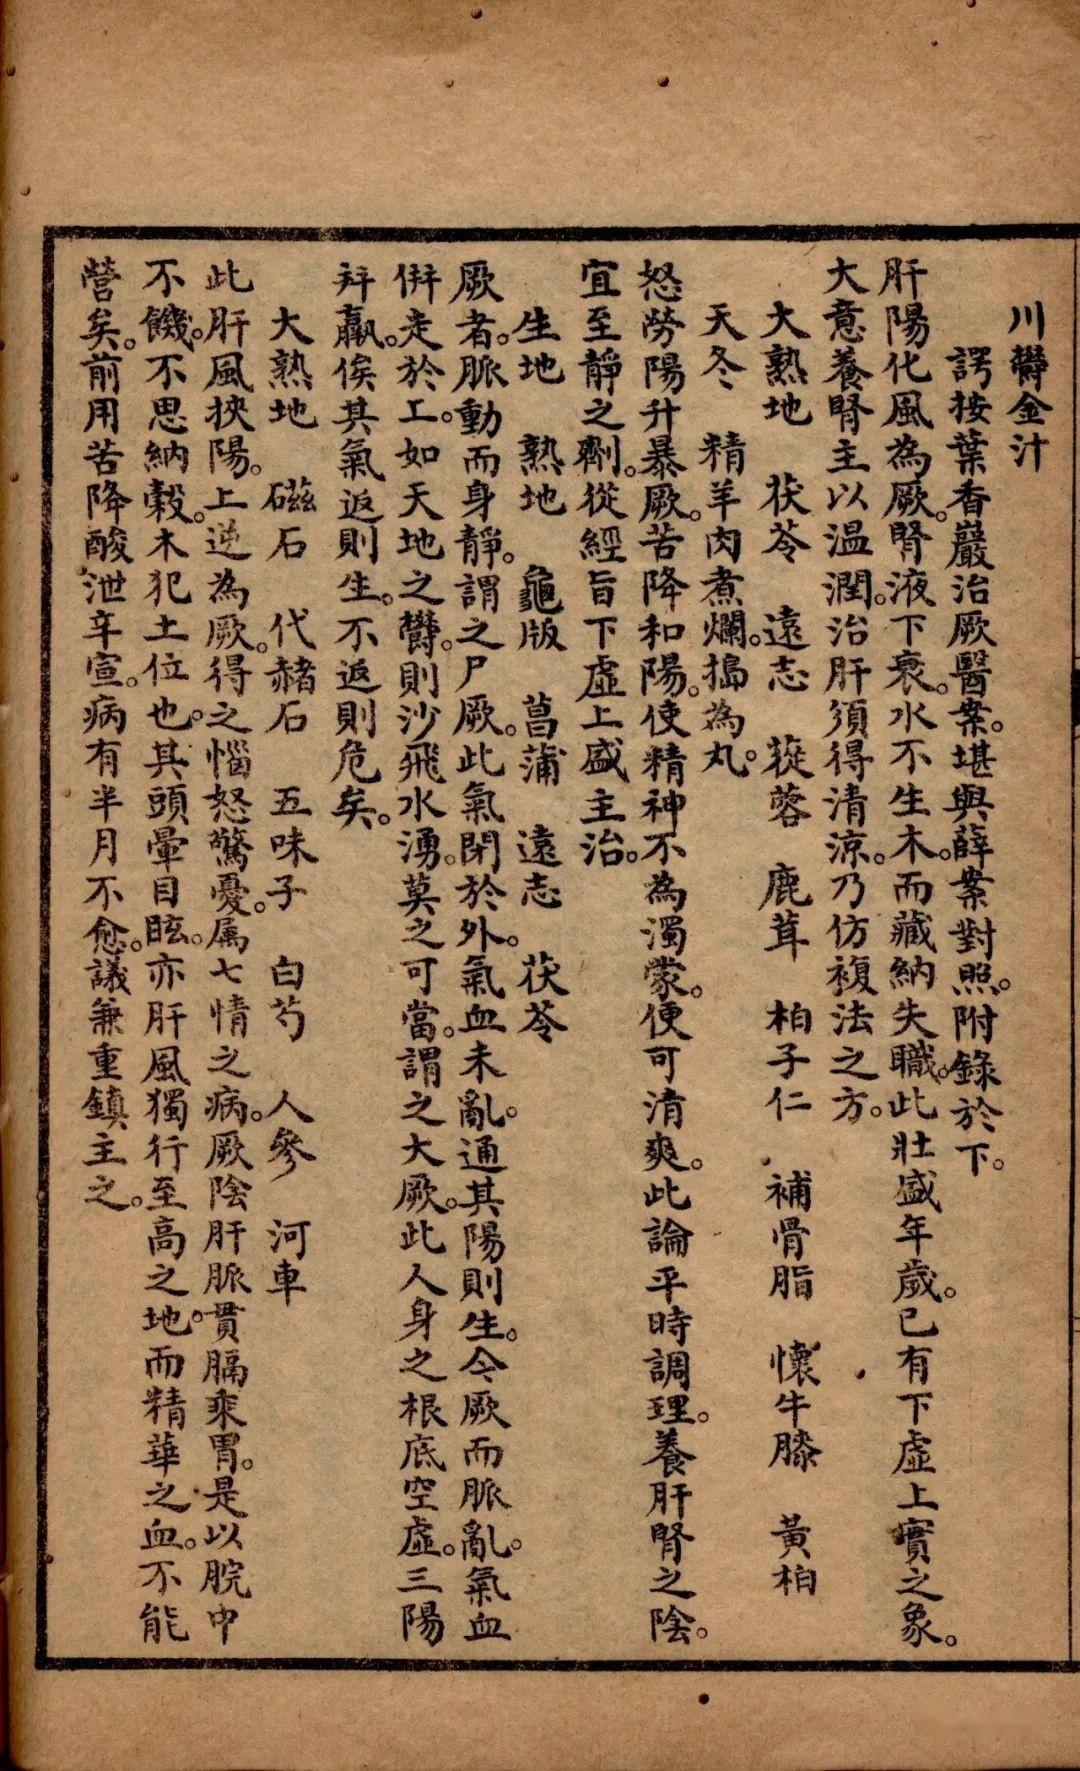 川鬱金汁
諤按葉香巖治厥醫案。堪與薛案對照。附錄於下。
肝陽化風為厥。腎液下衰。水不生木。而藏納失職。此壯盛年歲。已有下虛上實之象。
大意養腎主以温潤。治肝須得清涼。乃仿複法之方。
大熟地　茯苓　遠志　蓯蓉　鹿茸　柏子仁　補骨脂　懷牛膝　黃柏
天冬　精羊肉煮爛。搗為丸。
怒勞陽升暴厥。苦降和陽。使精神不為濁蒙。便可清爽。此論平時調理。養肝腎之陰。
宜至靜之劑。從經旨下虛上盛主治。
生地　熟地　龜版　菖蒲　遠志　茯苓
厥者。脈動而身靜。謂之尸厥。此氣閉於外。氣血未亂。通其陽則生。今厥而脈亂。氣血
併走於工。如天地之鬱。則沙飛水湧。莫之可當。謂之大厥。此人身之根底空虛。三陽
并羸。俟其氣返則生。不返則危矣。
大熟地　磁石　代赭石　五味子　白芍　人參　河車
此肝風挾陽。上逆為厥。得之惱怒驚憂。属七情之病。厥陰肝脈貫膈乘胃。是以脘中
不饑。不思納穀。木犯土位也。其頭暈目眩。亦肝風獨行至高之地。而精華之血。不能
營矣。前用苦降酸泄辛宣。病有半月不愈。議兼重鎮主之。